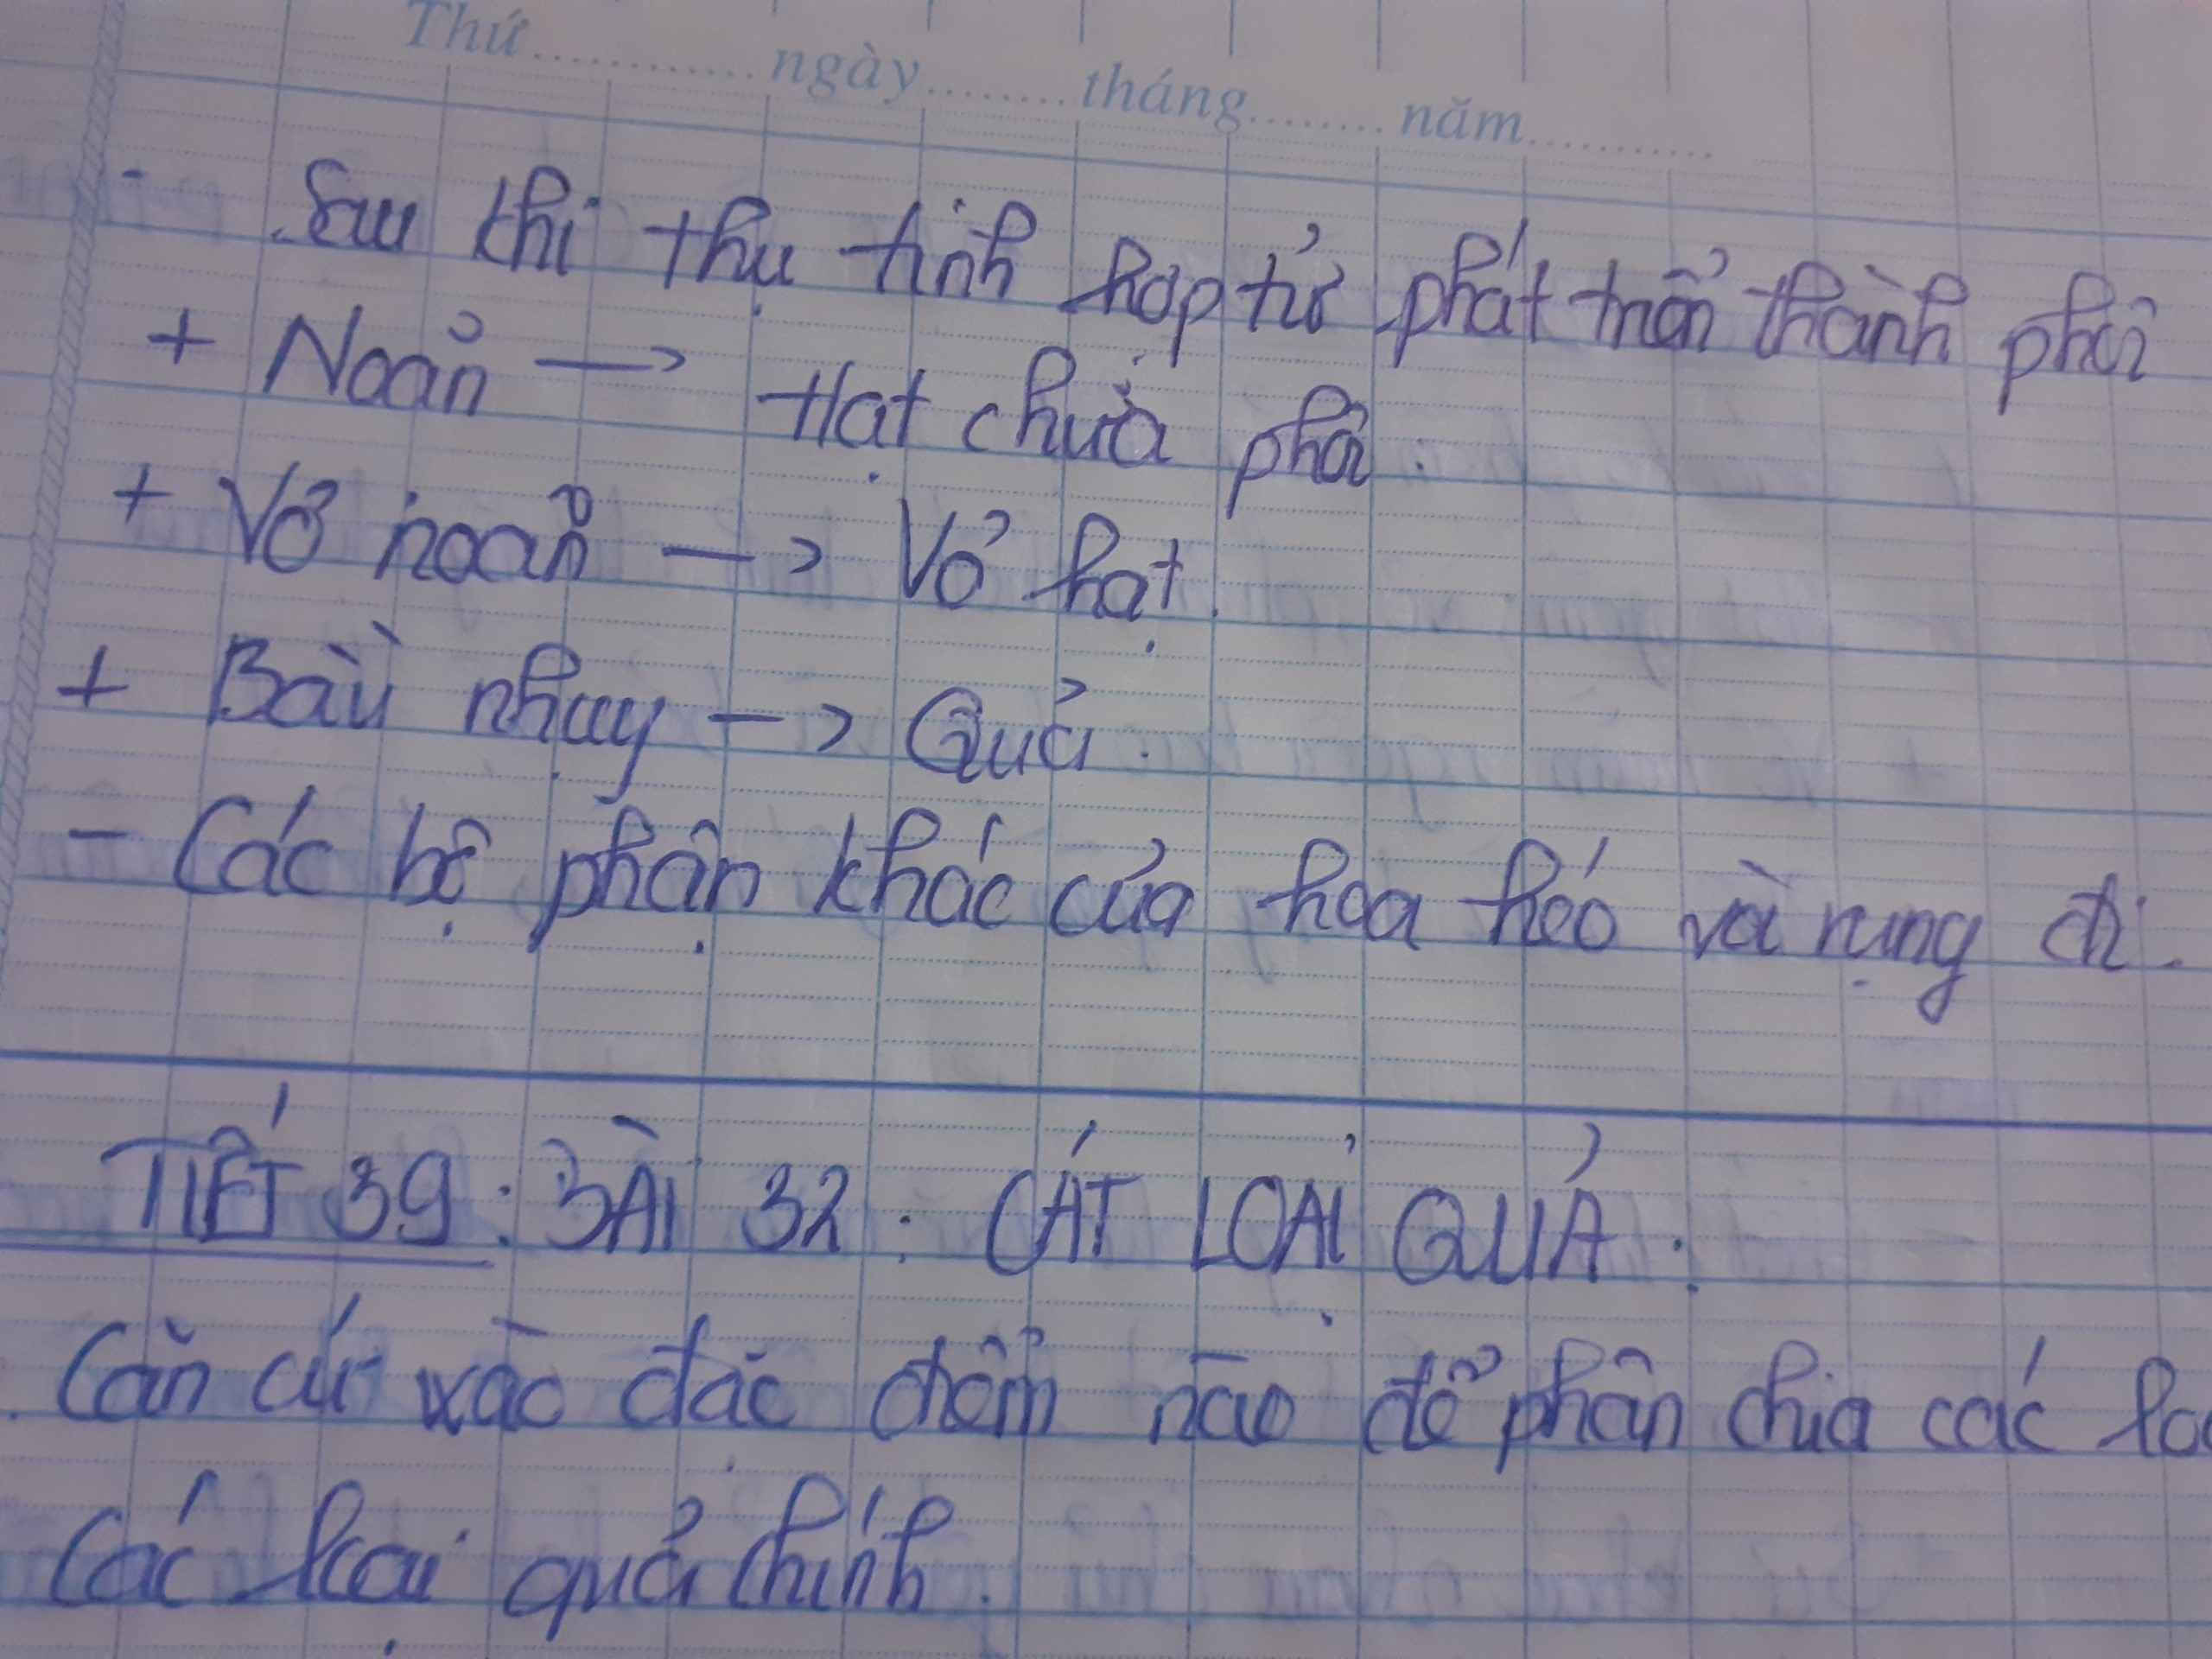 Thứ............ngày........tháng........năm...........
- Sau khi thụ tinh hợp tử phát triển thành phôi
+ Noãn → Hạt chứa phôi.
+ Vỏ noãn → Vỏ hạt.
+ Bầu nhụy → Quả.
- Các bộ phận khác của hoa héo và rụng đi.
TIẾT 39: BÀI 32: CÁT LOẠI QUẢ:
Căn cứ vào đặc điểm nào để phân chia các
Các loại quả chính.